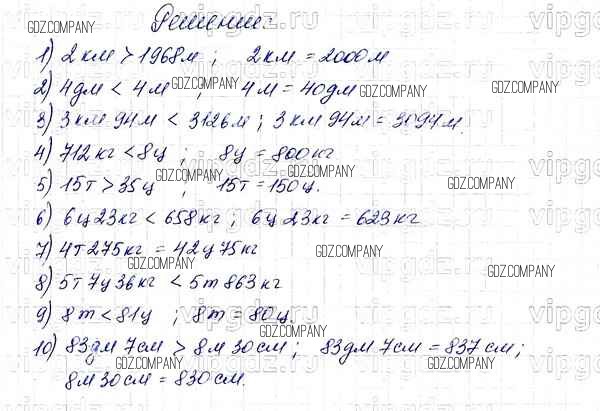 Решение:
1) 2 км > 1968 м ; 2 км = 2000 м
2) 4 дм < 4 м ; 4 м = 40 дм
3) 3 км 94 м < 3126 м ; 3 км 94 м = 3094 м.
4) 712 кг < 8 ц ; 8 ц = 800 кг
5) 15 т > 35 ц ; 15 т = 150 ц.
6) 6 ц 23 кг < 658 кг ; 6 ц 23 кг = 623 кг
7) 4 т 275 кг = 42 ц 75 кг
8) 5 т 7 ц 36 кг < 5 т 863 кг
9) 8 т < 81 ц ; 8 т = 80 ц.
10) 83 дм 7 см > 8 м 30 см ; 83 дм 7 см = 837 см ;
8 м 30 см = 830 см.
GDZ.COMPANY
vipgdz.ru